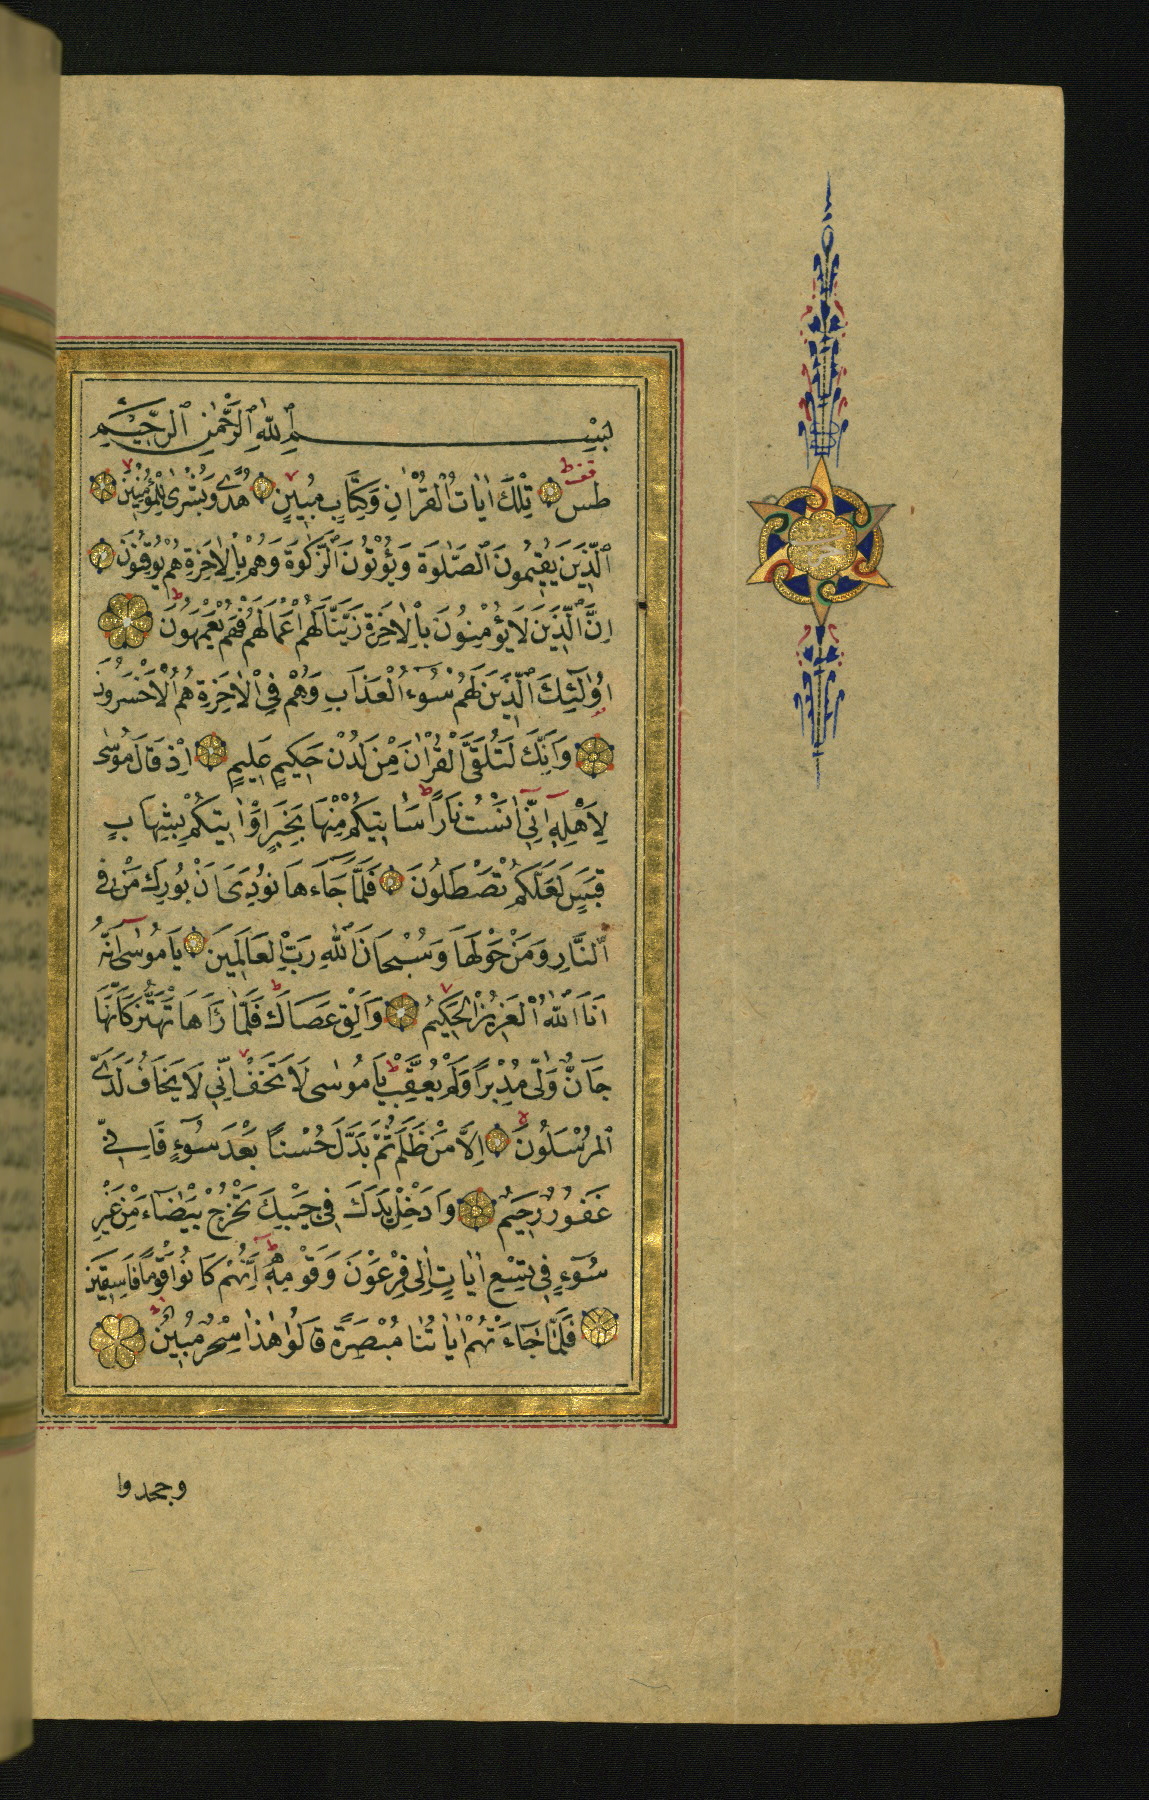 بِسْمِ اللّٰهِ الرَّحْمٰنِ الرَّحِيمِ
قف ط
طس تِلْكَ اٰيَاتُ الْقُرْاٰنِ وَكِتَابٍ مُبِينٍ هُدًى وَبُشْرٰى لِلْمُؤْمِنِينَ
اَلَّذِينَ يُقِيمُونَ الصَّلٰوةَ وَيُؤْتُونَ الزَّكٰوةَ وَهُمْ بِالْاٰخِرَةِ هُمْ يُوقِنُونَ
اِنَّ الَّذِينَ لَا يُؤْمِنُونَ بِالْاٰخِرَةِ زَيَّنَّا لَهُمْ اَعْمَالَهُمْ فَهُمْ يَعْمَهُونَ
اُولٰٓئِكَ الَّذِينَ لَهُمْ سُوٓءُ الْعَذَابِ وَهُمْ فِي الْاٰخِرَةِ هُمُ الْاَخْسَرُونَ
وَاِنَّكَ لَتُلَقَّى الْقُرْاٰنَ مِنْ لَدُنْ حَكِيمٍ عَلِيمٍ اِذْ قَالَ مُوسٰى
لِاَهْلِهٖ اِنِّي اٰنَسْتُ نَارًا سَاٰتِيكُمْ مِنْهَا بِخَبَرٍ اَوْ اٰتِيكُمْ بِشِهَابٍ
قَبَسٍ لَعَلَّكُمْ تَصْطَلُونَ فَلَمَّا جَاءَهَا نُودِيَ اَنْ بُورِكَ مَنْ فِي
النَّارِ وَمَنْ حَوْلَهَا وَسُبْحَانَ اللّٰهِ رَبِّ الْعَالَمِينَ يَا مُوسٰى اِنَّهُ
اَنَا اللّٰهُ الْعَزِيزُ الْحَكِيمُ وَاَلْقِ عَصَاكَ فَلَمَّا رَاٰهَا تَهْتَزُّ كَاَنَّهَا
جَانٌّ وَلّٰى مُدْبِرًا وَلَمْ يُعَقِّبْ يَا مُوسٰى لَا تَخَفْ اِنِّي لَا يَخَافُ لَدَيَّ
الْمُرْسَلُونَ اِلَّا مَنْ ظَلَمَ ثُمَّ بَدَّلَ حُسْنًا بَعْدَ سُوٓءٍ فَاِنِّي
غَفُورٌ رَحِيمٌ وَاَدْخِلْ يَدَكَ فِي جَيْبِكَ تَخْرُجْ بَيْضَاءَ مِنْ غَيْرِ
سُوٓءٍ فِي تِسْعِ اٰيَاتٍ اِلٰى فِرْعَوْنَ وَقَوْمِهٖ اِنَّهُمْ كَانُوا قَوْمًا فَاسِقِينَ
فَلَمَّا جَاءَتْهُمْ اٰيَاتُنَا مُبْصِرَةً قَالُوا هٰذَا سِحْرٌ مُبِينٌ
وجحدوا